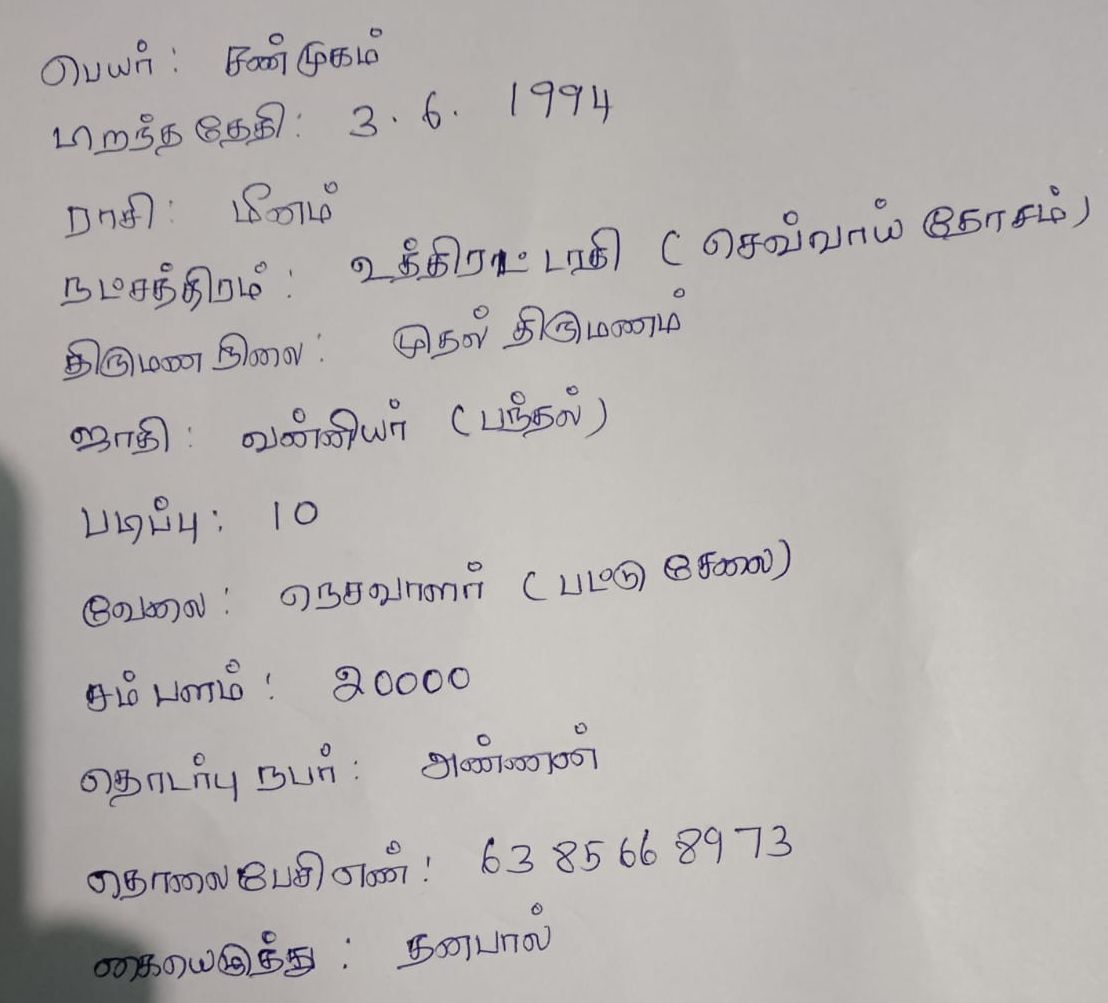 பெயர் : சண்முகம்
பிறந்த தேதி : 3 . 6 . 1994
ராசி : மீனம்
நட்சத்திரம் : உத்திரட்டாதி ( செவ்வாய் தோசம் )
திருமண நிலை : முதல் திருமணம்
ஜாதி : வன்னியர் ( பந்தல் )
படிப்பு : 10
வேலை : நெசவாளர் ( பட்டு சேலை )
சம்பளம் : 20000
தொடர்பு நபர் : அண்ணன்
தொலைபேசி எண் : 63 85 66 89 73
கையெழுத்து : தனபால்